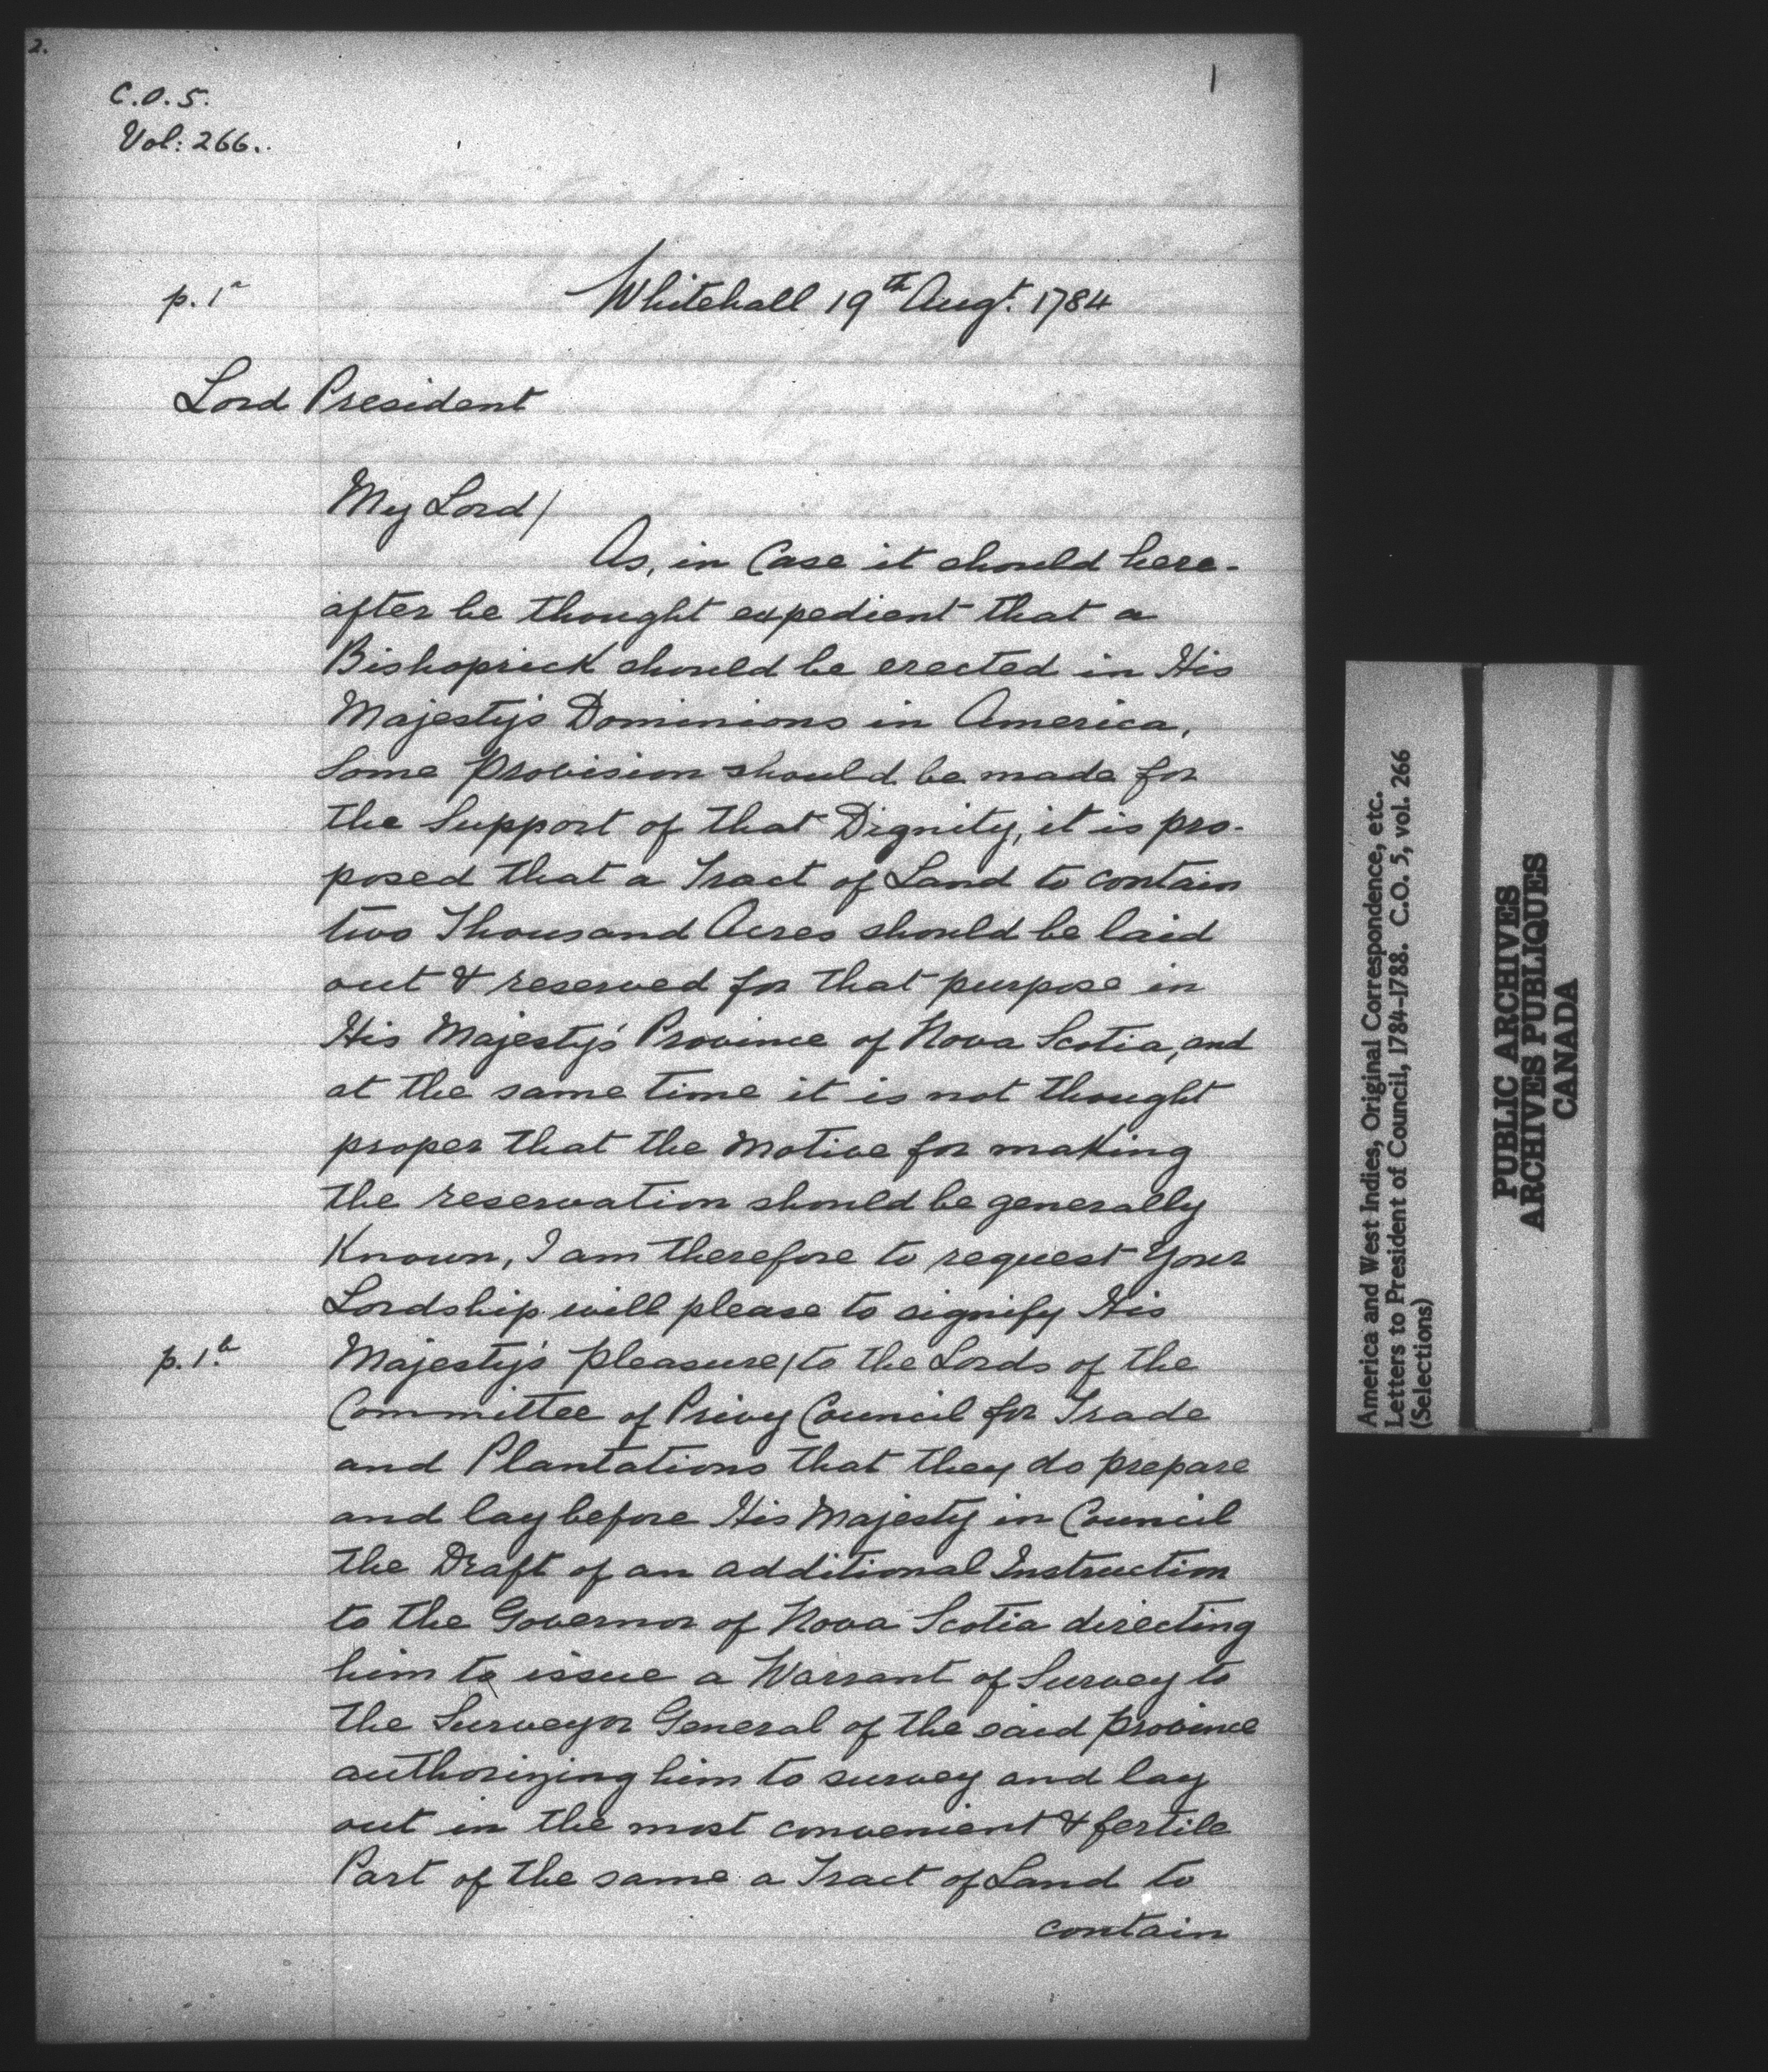 2.
1
C.O.5.
Vol: 266.
p. 1ª
Whitehall 19th Augt. 1784
Lord President
My Lord/
As, in Case it should here-
after be thought expedient that a
Bishoprick should be erected in His
Majesty's Dominions in America,
Some Provision should be made for
the Support of that Dignity, it is pro-
posed that a Tract of Land to contain
two Thousand Acres should be laid
out & reserved for that purpose in
His Majesty's Province of Nova Scotia, and
at the same time it is not thought
proper that the Motive for making
the reservation should be generally
Known, I am therefore to request Your
Lordship will please to signify His
p. 1.b
Majesty's pleasure/to the Lords of the
Committee of Privy Council for Trade
and Plantations that they do prepare
and lay before His Majesty in Council
the Draft of an additional Instruction
to the Governor of Nova Scotia directing
him to issue a Warrant of Survey to
the Surveyor General of the said province
authorizing him to survey and lay
out in the most convenient & fertile
Part of the same a Tract of Land to
contain
America and West Indies, Original Correspondence, etc.
Letters to President of Council, 1784-1788. C.O. 5, vol. 266
(Selections)
PUBLIC ARCHIVES
ARCHIVES PUBLIQUES
CANADA